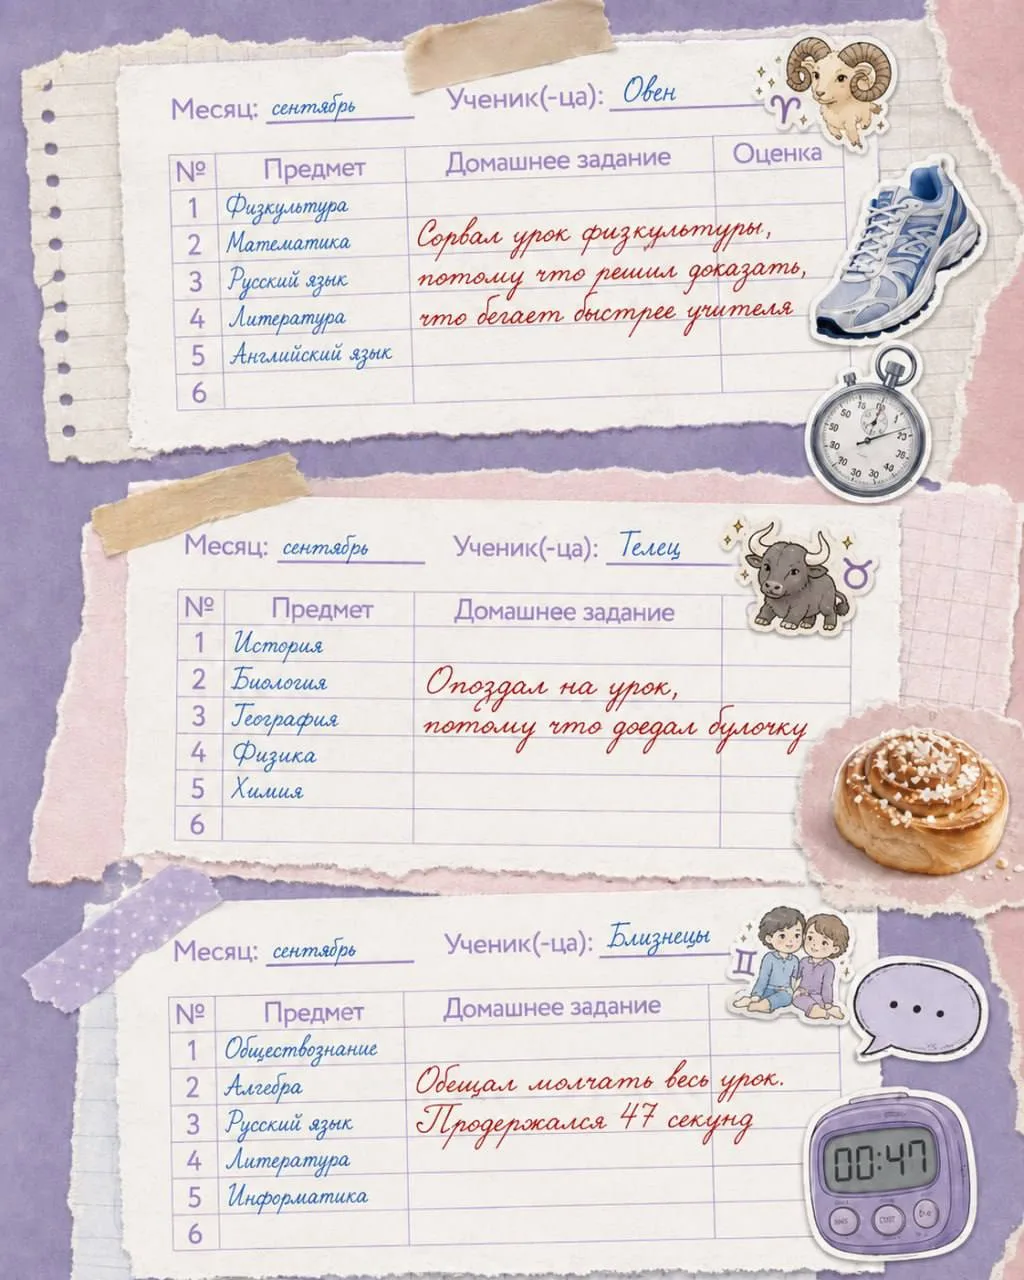 Месяц: сентябрь Ученик(-ца): Овен
№ Предмет Домашнее задание Оценка
1 Физкультура
2 Математика
3 Русский язык
4 Литература
5 Английский язык
6
Сорвал урок физкультуры,
потому что решил доказать,
что бегает быстрее учителя
Месяц: сентябрь Ученик(-ца): Телец
№ Предмет Домашнее задание
1 История
2 Биология
3 География
4 Физика
5 Химия
6
Опоздал на урок,
потому что доедал булочку
Месяц: сентябрь Ученик(-ца): Близнецы
№ Предмет Домашнее задание
1 Обществознание
2 Алгебра
3 Русский язык
4 Литература
5 Информатика
6
Обещал молчать весь урок.
Продержался 47 секунд
00:47